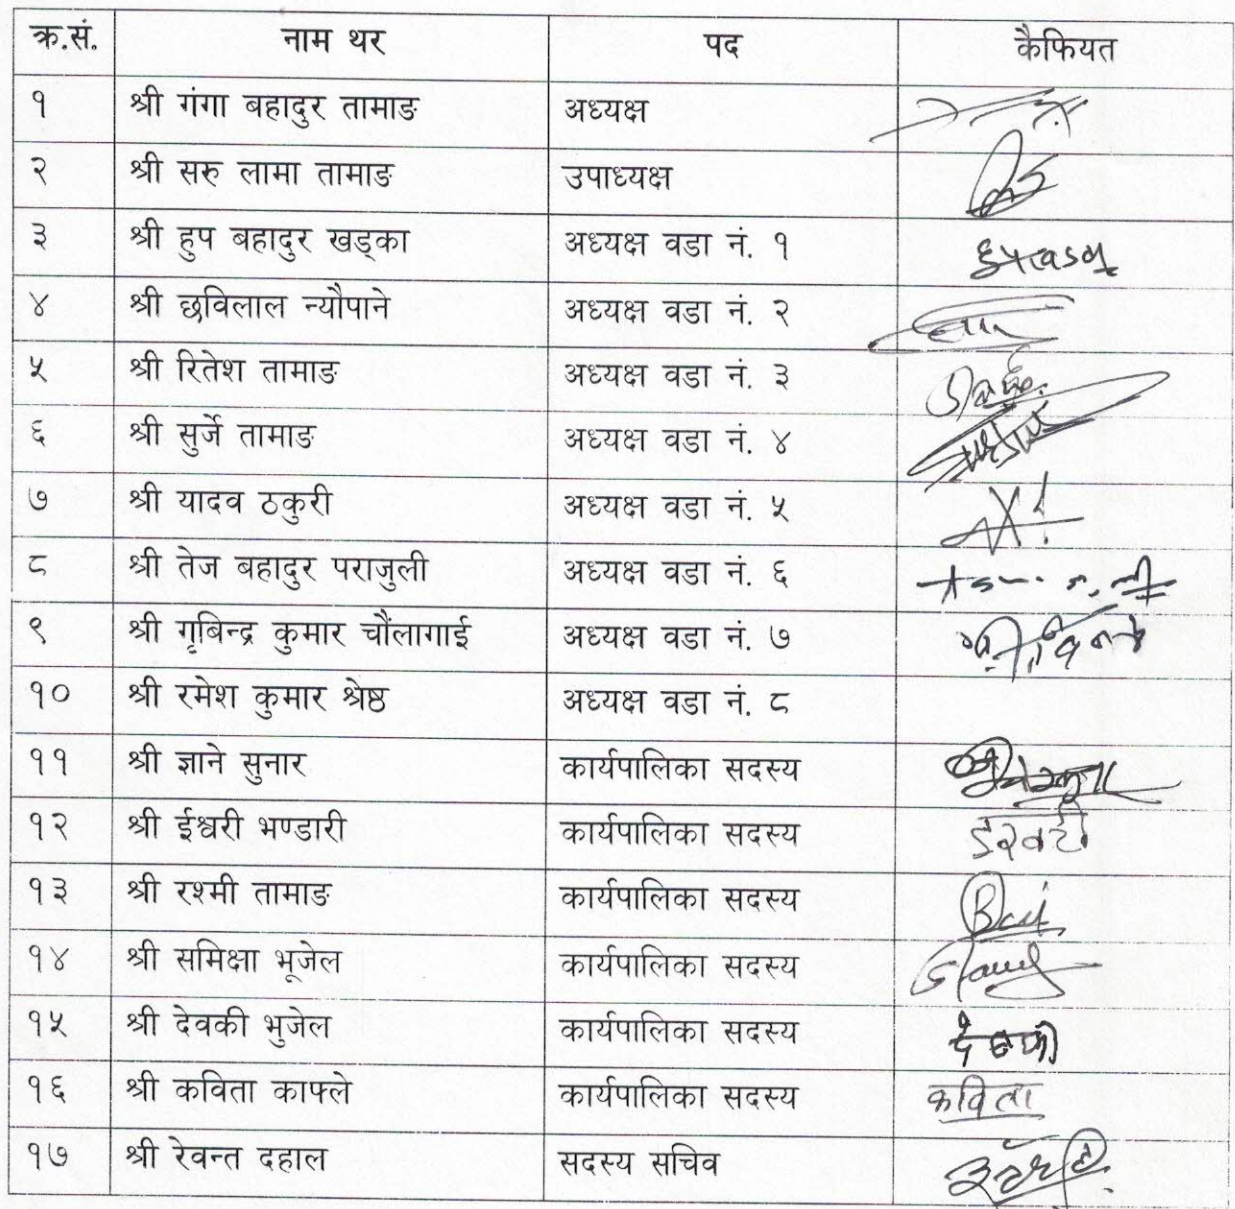 क्र.सं. नाम थर पद कैफियत
१ श्री गंगा बहादुर तामाङ अध्यक्ष
२ श्री सरु लामा तामाङ उपाध्यक्ष
३ श्री हुप बहादुर खड्का अध्यक्ष वडा नं. १
४ श्री छविलाल न्यौपाने अध्यक्ष वडा नं. २
५ श्री रितेश तामाङ अध्यक्ष वडा नं. ३
६ श्री सुर्जे तामाङ अध्यक्ष वडा नं. ४
७ श्री यादव ठकुरी अध्यक्ष वडा नं. ५
८ श्री तेज बहादुर पराजुली अध्यक्ष वडा नं. ६
९ श्री गृबिन्द्र कुमार चौंलागाई अध्यक्ष वडा नं. ७
१० श्री रमेश कुमार श्रेष्ठ अध्यक्ष वडा नं. ८
११ श्री ज्ञाने सुनार कार्यपालिका सदस्य
१२ श्री ईश्वरी भण्डारी कार्यपालिका सदस्य
१३ श्री रश्मी तामाङ कार्यपालिका सदस्य
१४ श्री समिक्षा भूजेल कार्यपालिका सदस्य
१५ श्री देवकी भुजेल कार्यपालिका सदस्य देवकी
१६ श्री कविता काफ्ले कार्यपालिका सदस्य कविता
१७ श्री रेवन्त दहाल सदस्य सचिव